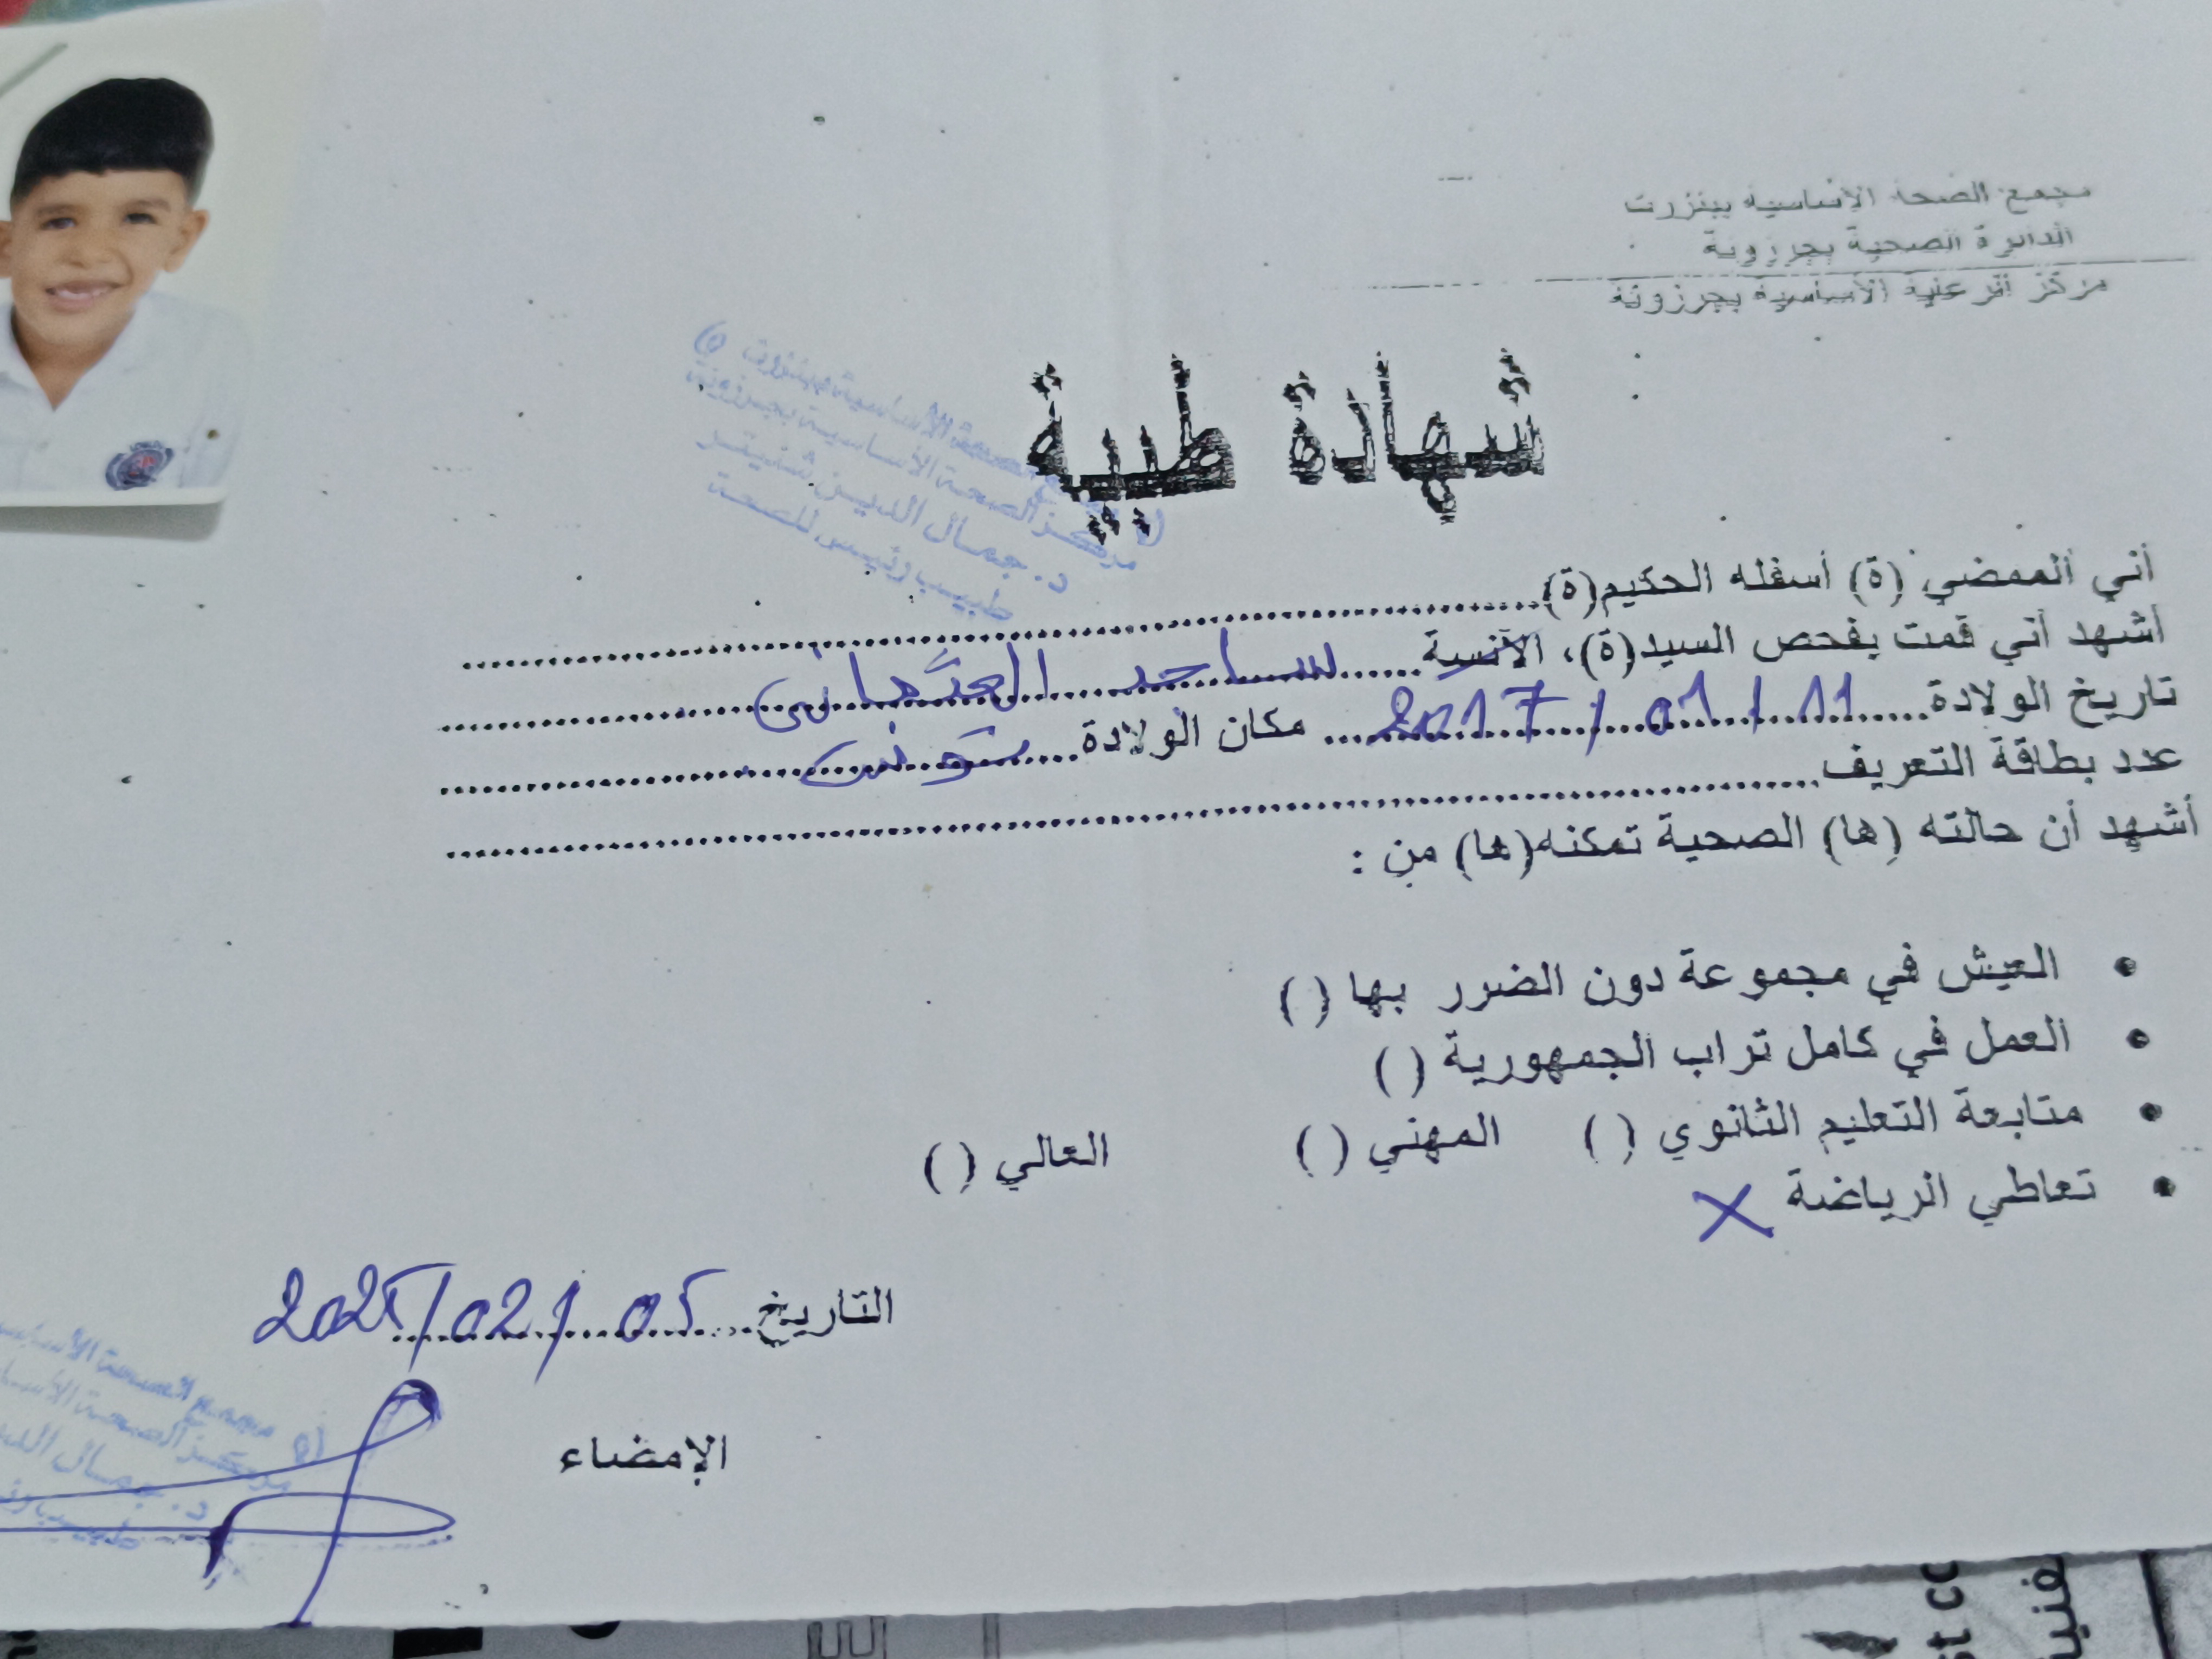 مجمع الصحة الأساسية ببنزرت
الدائرة الصحية بجرزونة
مركز الرعاية الأساسية بجرزونة
شهادة طبية
مجمع الصحة الأساسية ببنزرت
مركز الصحة الأساسية بجرزونة
د. جمال الدين شنيتر
طبيب رئيس للصحة
أني الممضي (ة) أسفله الحكيم(ة)
أشهد أني قمت بفحص السيد(ة)، الآنسة ساجد
تاريخ الولادة 11 / 01 / 2017 مكان الولادة تونس
عدد بطاقة التعريف
أشهد أن حالته (ها) الصحية تمكنه(ها) من :
• العيش في مجموعة دون الضرر بها ( )
• العمل في كامل تراب الجمهورية ( )
• متابعة التعليم الثانوي ( ) المهني ( ) العالي ( )
• تعاطي الرياضة X
التاريخ 05 / 02 / 2025
الإمضاء
مجمع الصحة
مركز الصحة
د. جمال
طبيب
st